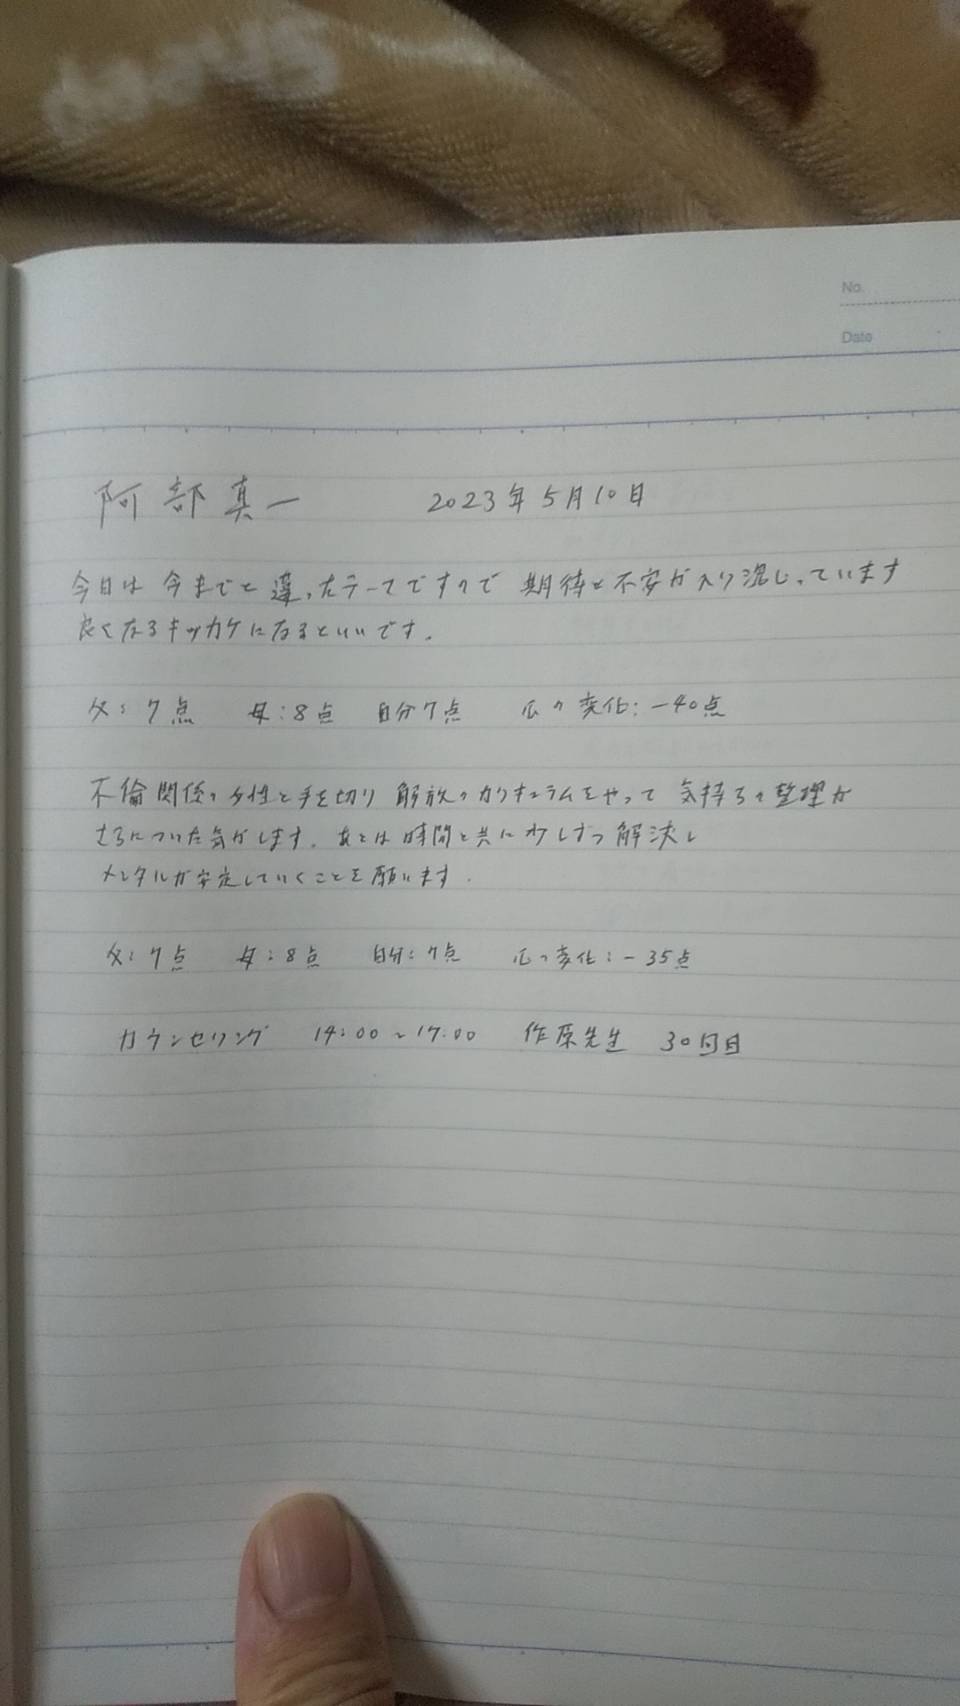 No.
Date
阿部真一 2023年5月10日
今日は今までと違ったテーマですので期待と不安が入り混じっています
良くなるキッカケになるといいです。
父:7点 母:8点 自分7点 心の変化:-40点
不倫関係の女性と手を切り解放のカリキュラムをやって気持ちの整理が
さらについた気がします。あとは時間と共に少しずつ解決し
メンタルが安定していくことを願います。
父:7点 母:8点 自分:7点 心の変化:-35点
カウンセリング 14:00~17:00 作原先生 30回目